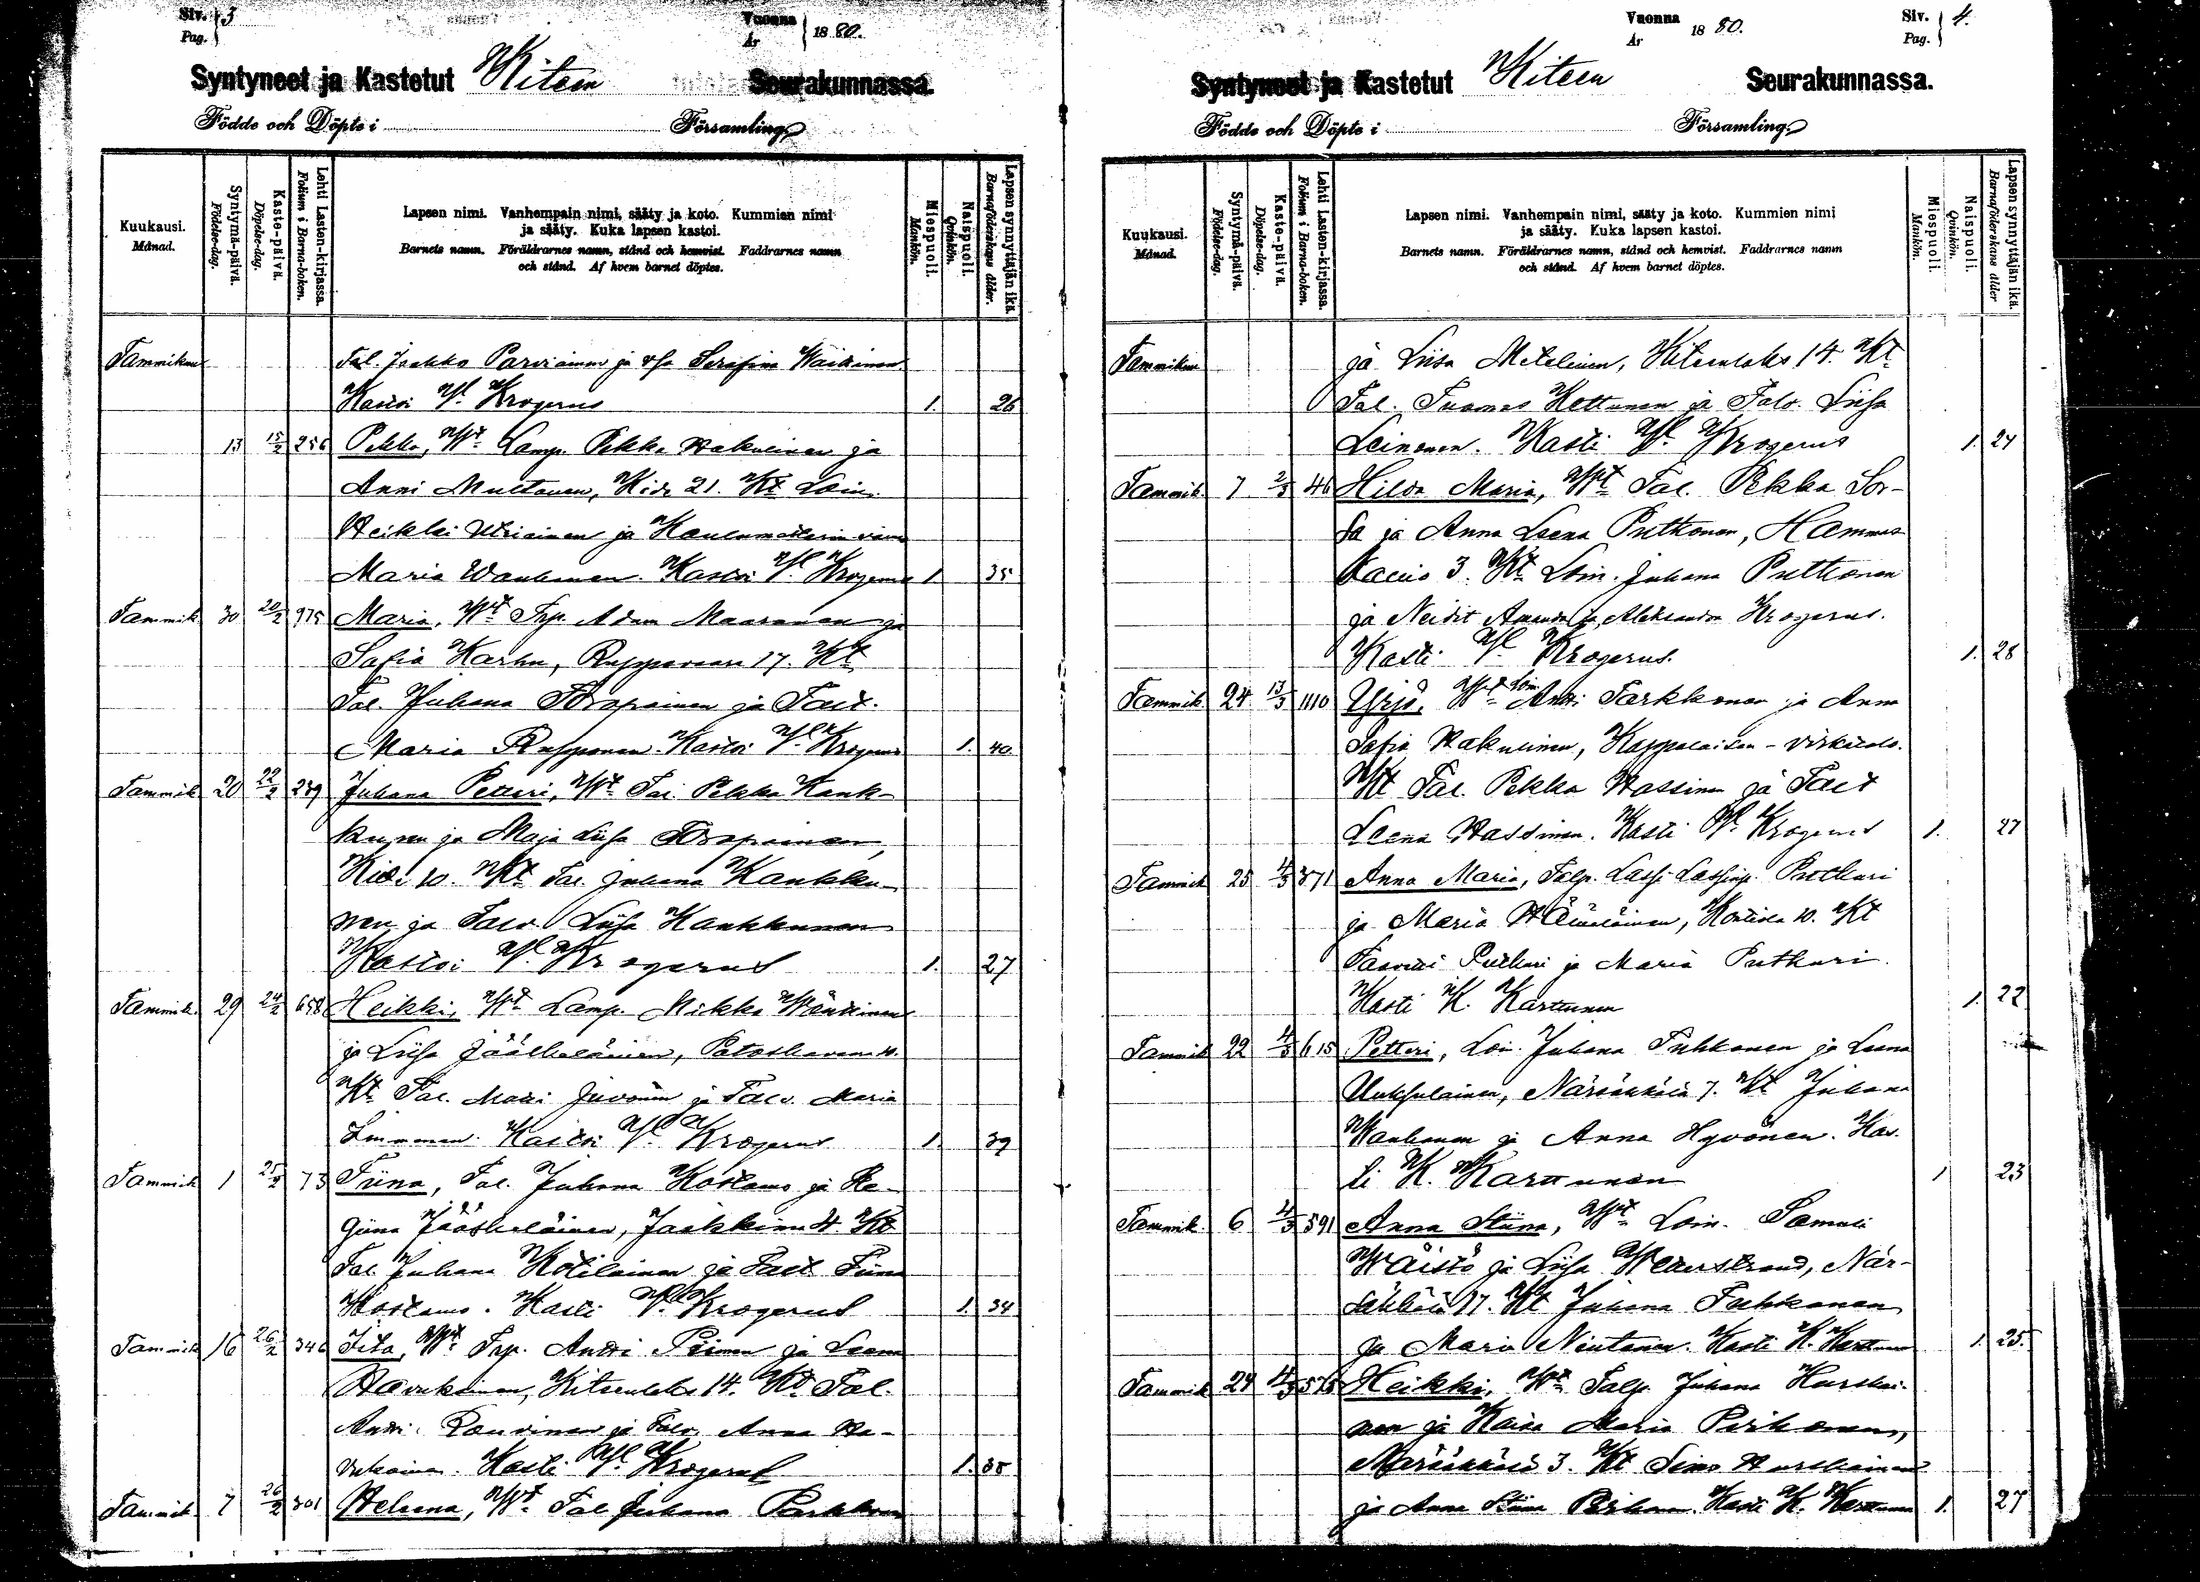 Siv. 3
Pag.
Vuonna
År 1880.
Syntyneet ja Kastetut Kiteen Seurakunnassa.
Födde och Döpte i Församling
Kuukausi.
Månad.
Syntymä-päivä.
Födelse-dag.
Kaste-päivä.
Döpelse-dag.
Lehti Lasten-kirjassa.
Folium i Barna-boken.
Lapsen nimi. Vanhempain nimi, sääty ja koto. Kummien nimi
ja sääty. Kuka lapsen kastoi.
Barnets namn. Föräldrarnes namn, stånd och hemvist. Faddrarnes namn
och stånd. Af hvem barnet döptes.
Miespuoli.
Mankön.
Naispuoli.
Qvinkön.
Lapsen synnyttäjän ikä.
Barnaföderskans ålder.
Tammikuu Tal. Jaakko Parviainen ja Serafina Wäikinen
Kastoi V. Krogerus 1. 26
13 15/2 256 Pekka, Lamp. Pekka Hakulinen ja
Anni Multanen, Kide 21. Kt Loin.
Heikki ja
Maria Wauhonen. Kastoi V. Krogerus 1 35
Tammik 30 20/2 975 Maria, Trp. Adam Maaranen ja
Safia Karhu, Ruppovaara 17. Kt
Tal. Juhana ja Talv.
Maria Rupponen. Kastoi V. Krogerus 1. 40
Tammik 20 22/2 239 Juhana Petteri, Tal. Pekka Kank-
kunen ja Maja Liisa
Kide 10. Kt Tal. Juhana Kankku-
nen ja Talv. Liisa Kankkunen
Kastoi V. Krogerus 1. 27
Tammik. 29 24/2 658 Heikki, Lamp. Mikko
ja Liisa Jääskeläinen, Potoskavaara 10.
Kt Tal. Matti Juvonen ja Talv. Maria
Immonen. Kastoi V. Krogerus 1. 39
Tammik 1 25/2 73 Tiina, Tal. Juhana Kostamo ja Re-
giina Jääskeläinen, Jaakkima 4. Kt
Tal. Juhana Kotilainen ja Tiina
Kostamo. Kasti V. Krogerus 1. 34
Tammik 16 26/2 346 Iita, Trp. Antti Piironen ja Leena
Havukainen, Kitsenlaks 14. Kt Tal.
Antti ja Talv. Anna Ha-
vukainen. Kasti V. Krogerus 1. 38
Tammik 7 26/2 301 Helena, Tal Juhana
Vuonna
År 1880.
Siv. 4.
Pag.
Syntyneet ja Kastetut Kiteen Seurakunnassa.
Födde och Döpte i Församling
Kuukausi.
Månad.
Syntymä-päivä.
Födelse-dag.
Kaste-päivä.
Döpelse-dag.
Lehti Lasten-kirjassa.
Folium i Barna-boken.
Lapsen nimi. Vanhempain nimi, sääty ja koto. Kummien nimi
ja sääty. Kuka lapsen kastoi.
Barnets namn. Föräldrarnes namn, stånd och hemvist. Faddrarnes namn
och stånd. Af hvem barnet döptes.
Miespuoli.
Mankön.
Naispuoli.
Qvinkön.
Lapsen synnyttäjän ikä.
Barnaföderskans ålder
Tammikuu ja Liisa Meteleinen, Kitsenlaks 14. Kt
Tal. Tuomas Kettunen ja Talv. Liisa
Leinonen. Kasti V. Krogerus 1. 24
Tammik 7 2/3 46 Hilda Maria, Tal. Pekka Sor-
sa ja Anna Leena Putkonen, Hammas
3. Kt Loin. Juhana Putkonen
ja Neidit Amanda ja Aleksandra Krogerus.
Kasti V. Krogerus. 1. 28
Tammik 24 13/3 1110 Yrjö, Loin. Antti Tarkkonen ja Anna
Safia Hakulinen, Kappalaisen-virkatalo.
Kt Tal. Pekka Hassinen ja
Leena Hassinen. Kasti V. Krogerus 1. 27
Tammik 25 4/3 371 Anna Maria, Talp. Lassi Lassinp. Putkuri
ja Maria Hämäläinen, Kontiola 10. Kt
Taavetti Putkuri ja Maria Putkuri.
Kasti K. Karttunen 1. 22
Tammik 22 4/3 615 Petteri, Loi. Juhana Tuhkanen ja Leena
Uuksulainen, Närsäkkälä 7. Kt Juhana
Wauhonen ja Anna Hyvönen. Kas-
ti K. Karttunen 1 23
Tammik. 6 4/3 591 Anna Stiina, Loin. Samuli
Wäistö ja Liisa Weterstrand, När-
säkkälä 17. Kt Juhana Tuhkanen
ja Maria Niutanen. Kasti K. Karttunen 1. 25.
Tammik 24 4/3 575 Heikki, Talp. Juhana Hurskai-
nen ja Kaisa Maria Pirhonen,
Närsäkkälä 3. Kt Simo Hurskainen
ja Anna Stiina Pirhonen. Kasti K. Karttunen 1. 27